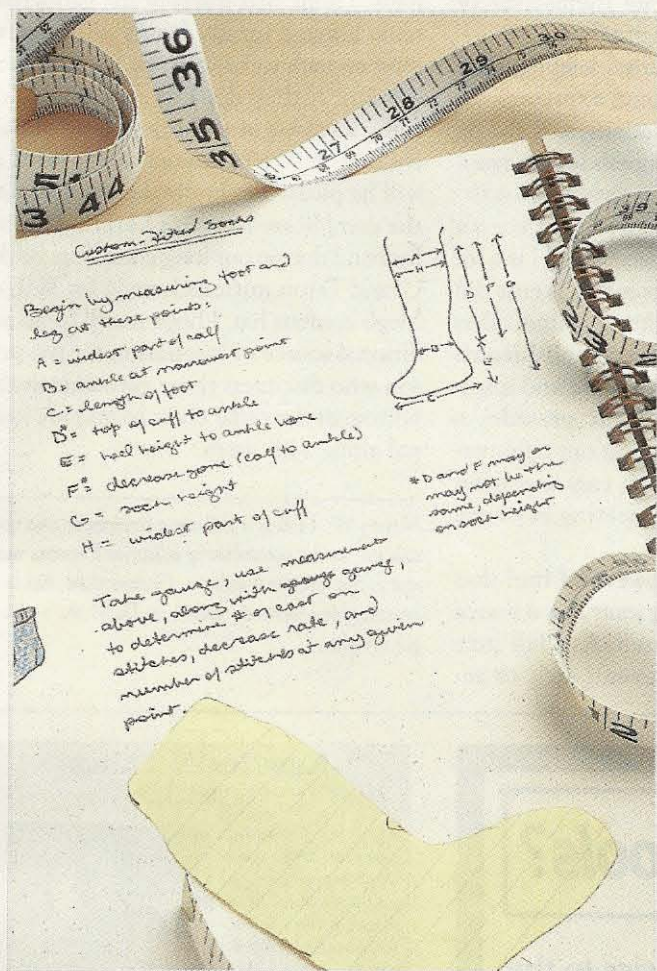 36
35
30
29
28
27
5
4
4
3
Custom-Fitted Socks
Begin by measuring foot and
leg at these points:
A = widest part of calf
B = ankle at narrowest point
C = length of foot
D* = top of cuff to ankle
E = heel height to ankle bone
F* = decrease zone (calf to ankle)
G = sock height
H = widest part of cuff
A
H
D
F
G
B
E
C
*D and F may or
may not be the
same, depending
on sock height
Take gauge, use measurements
above, along with gauge,
to determine # of cast on
stitches, decrease rate, and
number of stitches at any given
point.